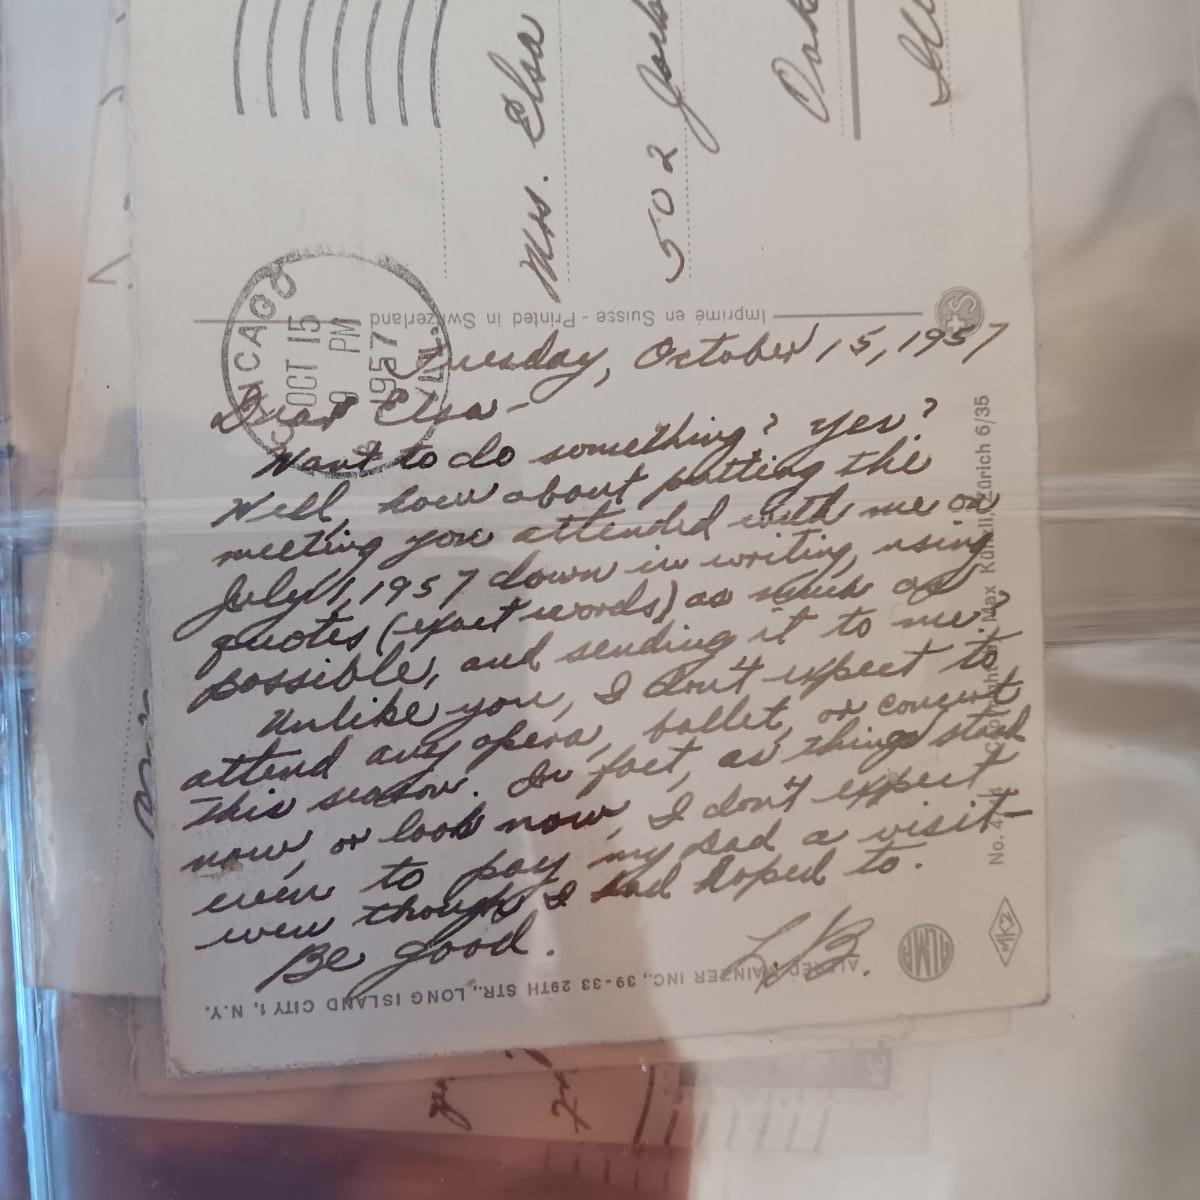 Mrs. Elsa
502
Oak
CHICAGO
OCT 15
9 PM
1957
Imprimé en Suisse - Printed in Switzerland
Tuesday, October 15, 1957
Dear Elsa -
Want to do something? Yes?
Well how about putting the
meeting you attended with me on
July 1, 1957 down in writing, using
quotes (exact words) as much as
possible, and sending it to me.
Unlike you, I don't expect to
attend any opera, ballet, or concert
this season. In fact, as things stand
now, or look now, I don't expect
even to pay my Dad a visit -
even though I had hoped to.
Be good.
L B.
ALMA
MKZ
ALFRED MAINZER INC., 39-33 29TH STR., LONG ISLAND CITY 1, N.Y.
No. Max Künzli, Zürich 6/35